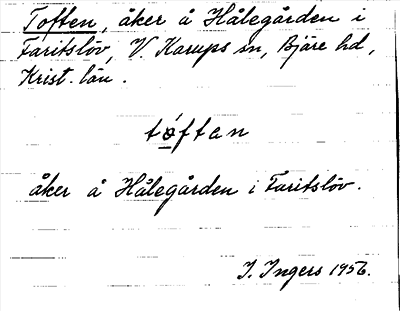 Toften, åker å Hålegården i
Faritslöv, V. Karups sn, Bjäre hd,
Krist. län.
tøftan
åker å Hålegården i Faritslöv.
I. Ingers 1956.